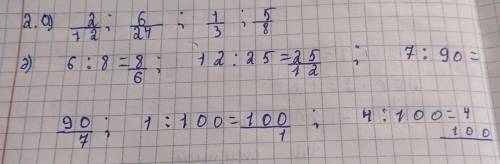 2. а) 2/12; 6/24; 1/3; 5/8
д) 6 : 8 = 8/6; 12 : 25 = 25/12; 7 : 90 =
90/7; 1 : 100 = 100/1; 4 : 100 = 4/100